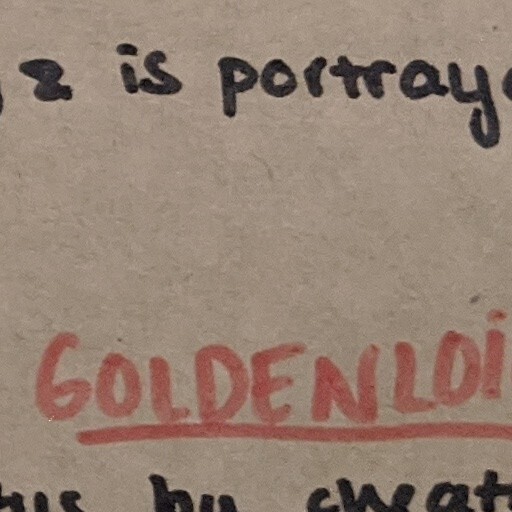 z is portray
GOLDENLOi
by cheat